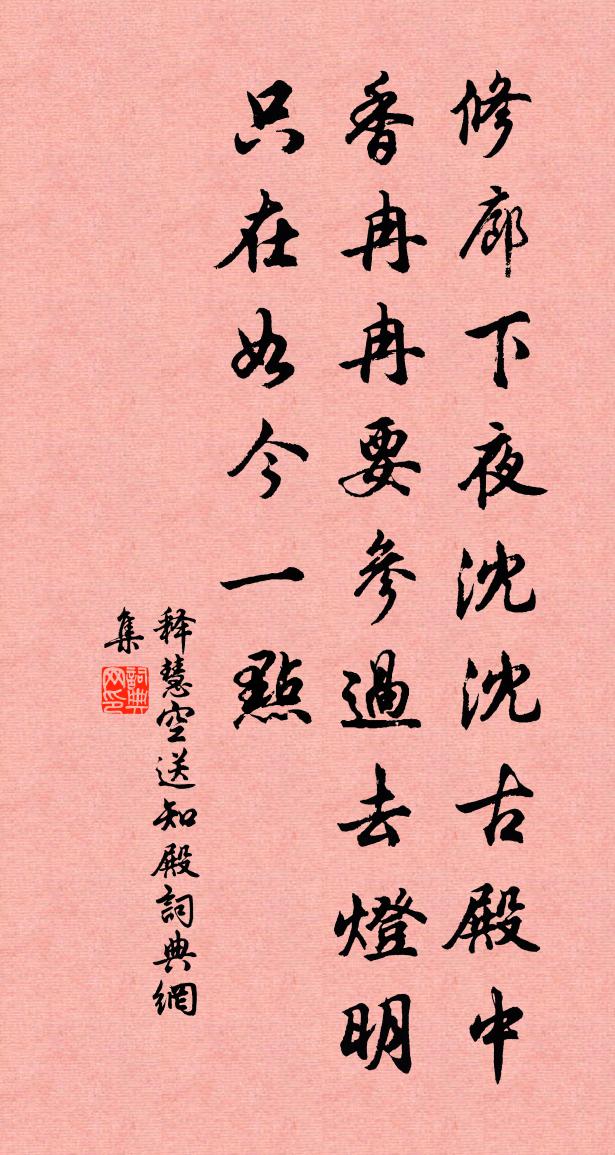 修廊下夜沈沈古殿中
香冉冉要參過去燈明
只在如今一點
释慧空送知殿詞典網
集
詞典網印